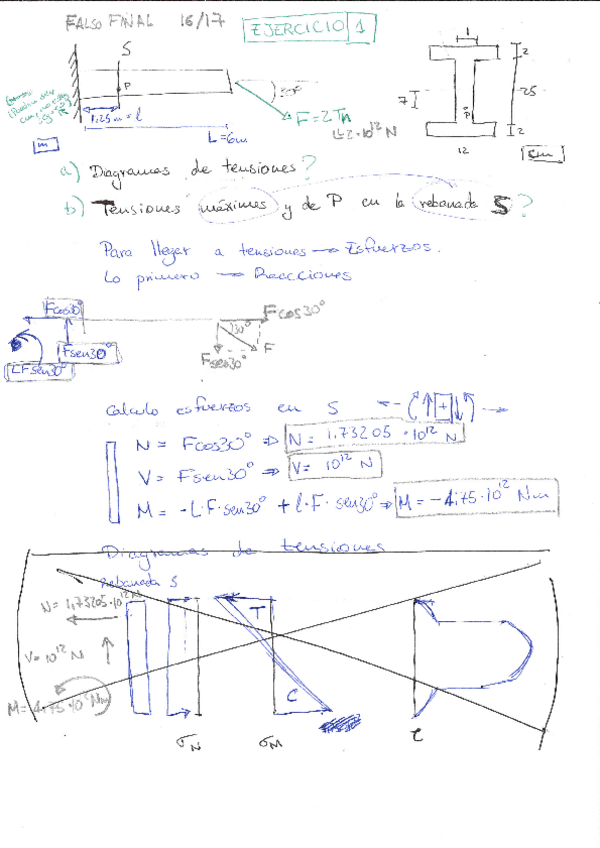 FALSO FINAL 16/17 EJERCICIO 1
S
P
1.25 m = l
30º
F = 2Tn
L=6m
m
1
2
7
25
P
2
12
cm
a) Diagramas de tensiones?
b) Tensiones máximas y de P en la rebanada S?
Para llegar a tensiones → Esfuerzos.
Lo primero → Reacciones
Fcos30º
Fcos30º
30º
Fsen30º
Fsen30º
F
LFsen30º
Calculo esfuerzos en S
+
N = Fcos30º ⇒ N = 1,73205 · 10¹² N
V = Fsen30º ⇒ V = 10¹² N
M = -L·F·sen30º + l·F·sen30º ⇒ M = -4,75·10¹² Nm
Diagramas de tensiones
Rebanada S
N = 1,73205·10¹² N
T
V = 10¹² N
C
M = 4,75·10¹² Nm
σN σM τ